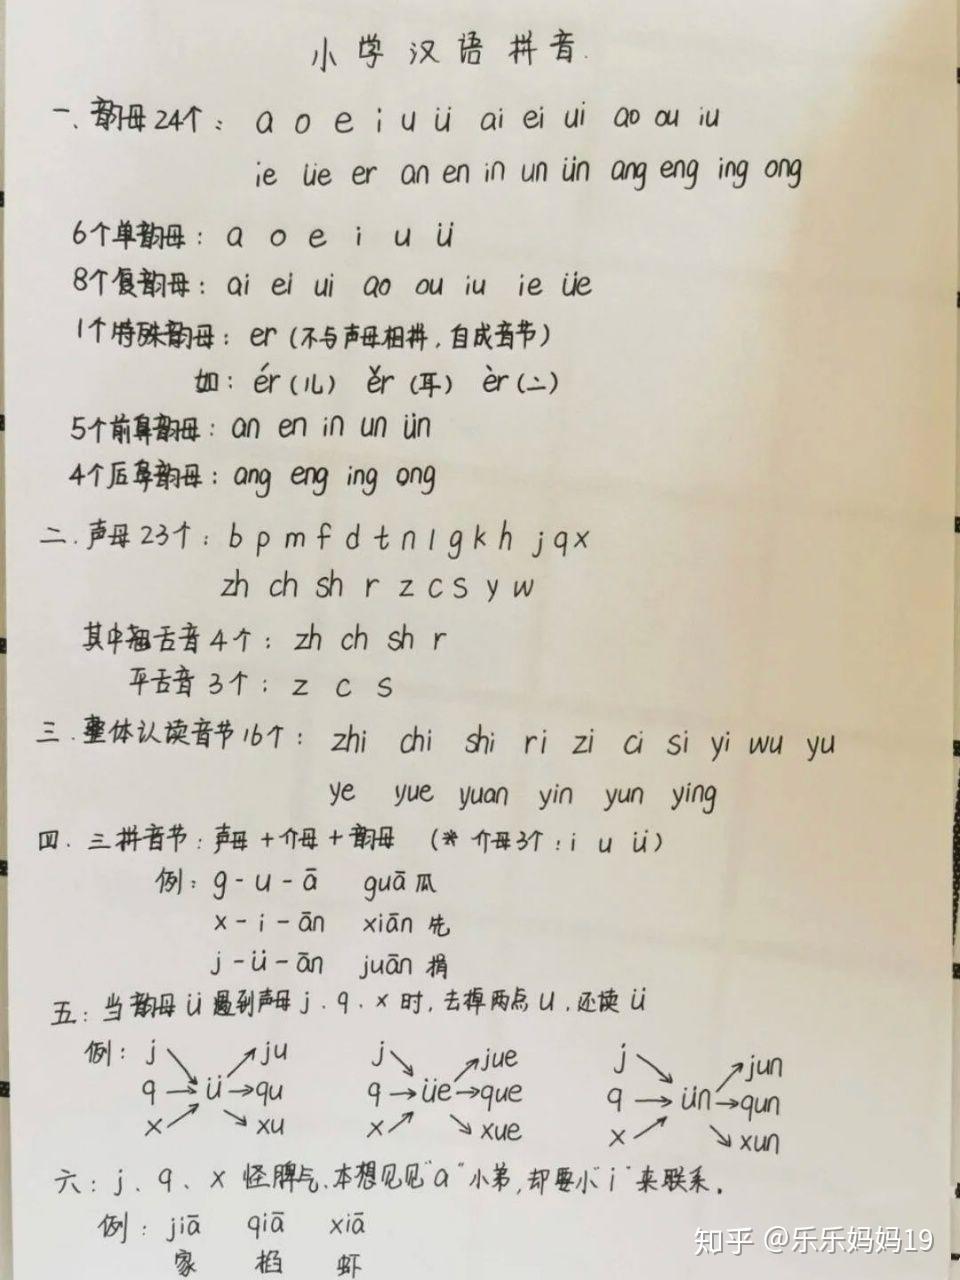 小学汉语拼音.
一、韵母24个: a o e i u ü ai ei ui ao ou iu
ie üe er an en in un ün ang eng ing ong
6个单韵母: a o e i u ü
8个复韵母: ai ei ui ao ou iu ie üe
1个特殊韵母: er (不与声母相拼,自成音节)
如: ér(儿) ěr(耳) èr(二)
5个前鼻韵母: an en in un ün
4个后鼻韵母: ang eng ing ong
二.声母23个: b p m f d t n l g k h j q x
zh ch sh r z c s y w
其中翘舌音4个: zh ch sh r
平舌音3个: z c s
三.整体认读音节16个: zhi chi shi ri zi ci si yi wu yu
ye yue yuan yin yun ying
四.三拼音节:声母+介母+韵母 (*介母3个:i u ü)
例: g-u-ā guā瓜
x-i-ān xiān先
j-ü-ān juān捐
五:当韵母ü遇到声母j、q、x时,去掉两点u,还读ü
例: j → ju j → jue j → jun
q → ü → qu q → üe → que q → ün → qun
x → xu x → xue x → xun
六:j、q、x怪脾气、本想见见"a"小弟,却要小"i"来联系。
例: jiā qiā xiā
家 掐 虾
知乎 @乐乐妈妈19